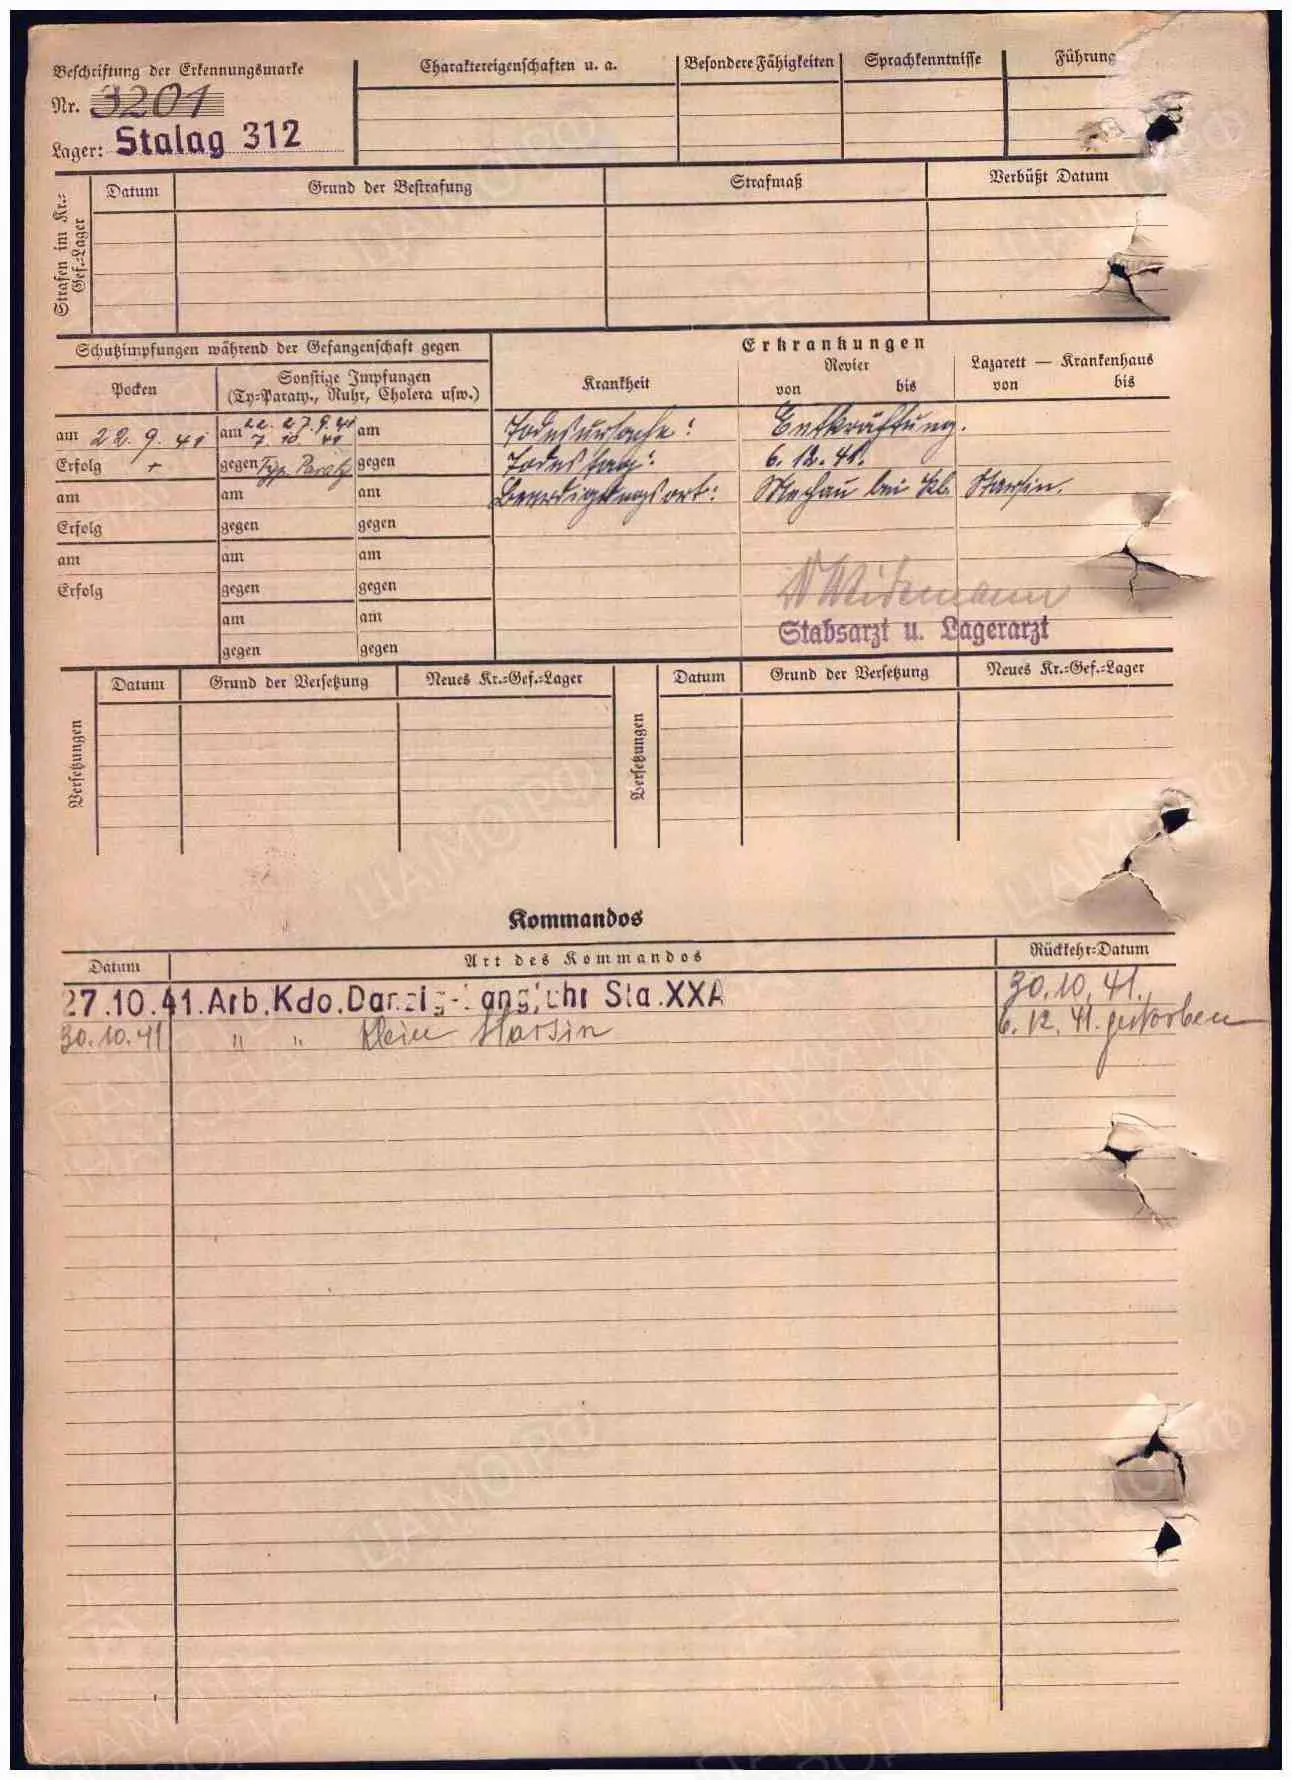 Beschriftung der Erkennungsmarke
Nr. 3201
Lager: Stalag 312
Charaktereigenschaften u. a.
Besondere Fähigkeiten
Sprachkenntnisse
Führung
Strafen im Kr.-Gef.-Lager
Datum
Grund der Bestrafung
Strafmaß
Verbüßt Datum
Schutzimpfungen während der Gefangenschaft gegen
Pocken
Sonstige Impfungen
(Ty-Paraty., Ruhr, Cholera usw.)
am 22.9.41
am 22. 27.9.41
7. 10. 41
am
Erfolg +
gegen Typ. Paraty
gegen
am
am
am
Erfolg
gegen
gegen
am
am
am
Erfolg
gegen
gegen
am
am
gegen
gegen
Erkrankungen
Krankheit
Revier
von bis
Lazarett — Krankenhaus
von bis
Todesursache: Entkräftung.
Todestag: 6.12.41.
Beerdigungsort: Mechau bei Kl. Starsin.
Stabsarzt u. Lagerarzt
Versetzungen
Datum
Grund der Versetzung
Neues Kr.-Gef.-Lager
Versetzungen
Datum
Grund der Versetzung
Neues Kr.-Gef.-Lager
Kommandos
Datum
Art des Kommandos
Rückkehr-Datum
27.10.41. Arb.Kdo.Danzig-Langfuhr Sta.XXA 30.10.41.
30.10.41 " " Klein Starsin 6.12.41. gestorben
ЦАМО РФ
ПАМЯТЬ
НАРОДА